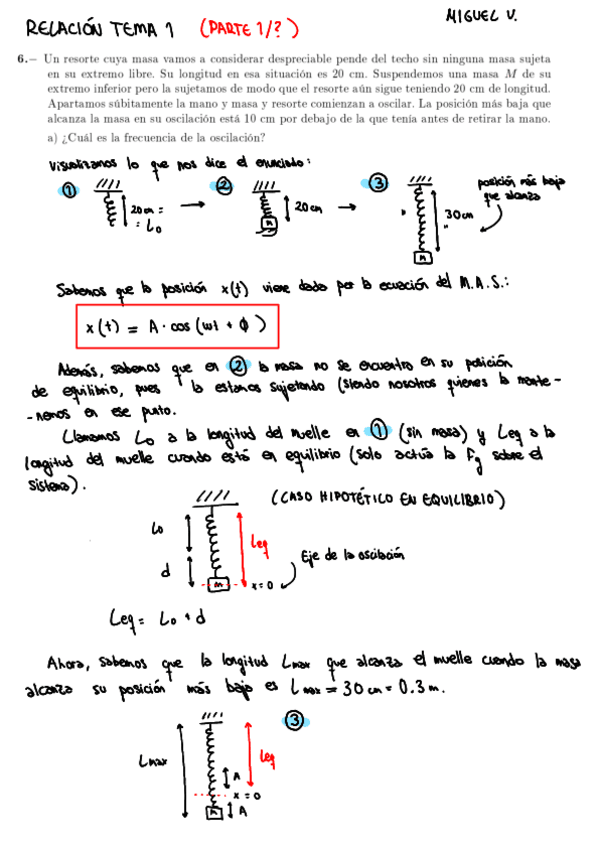 MIGUEL V.
RELACIÓN TEMA 1 (PARTE 1/?)
6.– Un resorte cuya masa vamos a considerar despreciable pende del techo sin ninguna masa sujeta
en su extremo libre. Su longitud en esa situación es 20 cm. Suspendemos una masa M de su
extremo inferior pero la sujetamos de modo que el resorte aún sigue teniendo 20 cm de longitud.
Apartamos súbitamente la mano y masa y resorte comienzan a oscilar. La posición más baja que
alcanza la masa en su oscilación está 10 cm por debajo de la que tenía antes de retirar la mano.
a) ¿Cuál es la frecuencia de la oscilación?
Visualizamos lo que nos dice el enunciado:
① ② ③ posición más baja
que alcanza
20 cm =
= L₀
20 cm
30 cm
M
M
Sabemos que la posición x(t) viene dada por la ecuación del M.A.S.:
x(t) = A · cos (ωt + ϕ)
Además, sabemos que en ② la masa no se encuentra en su posición
de equilibrio, pues la estamos sujetando (siendo nosotros quienes la mante-
-nemos en ese punto.
Llamamos L₀ a la longitud del muelle en ① (sin masa) y Leq a la
longitud del muelle cuando está en equilibrio (solo actúa la Fg sobre el
sistema).
(CASO HIPOTÉTICO EN EQUILIBRIO)
L₀
Leq
Eje de la oscilación
d
M
x=0
Leq = L₀ + d
Ahora, sabemos que la longitud Lmax que alcanza el muelle cuando la masa
alcanza su posición más baja es Lmax = 30 cm = 0.3 m.
③
Lmax
Leq
A
x=0
M
A